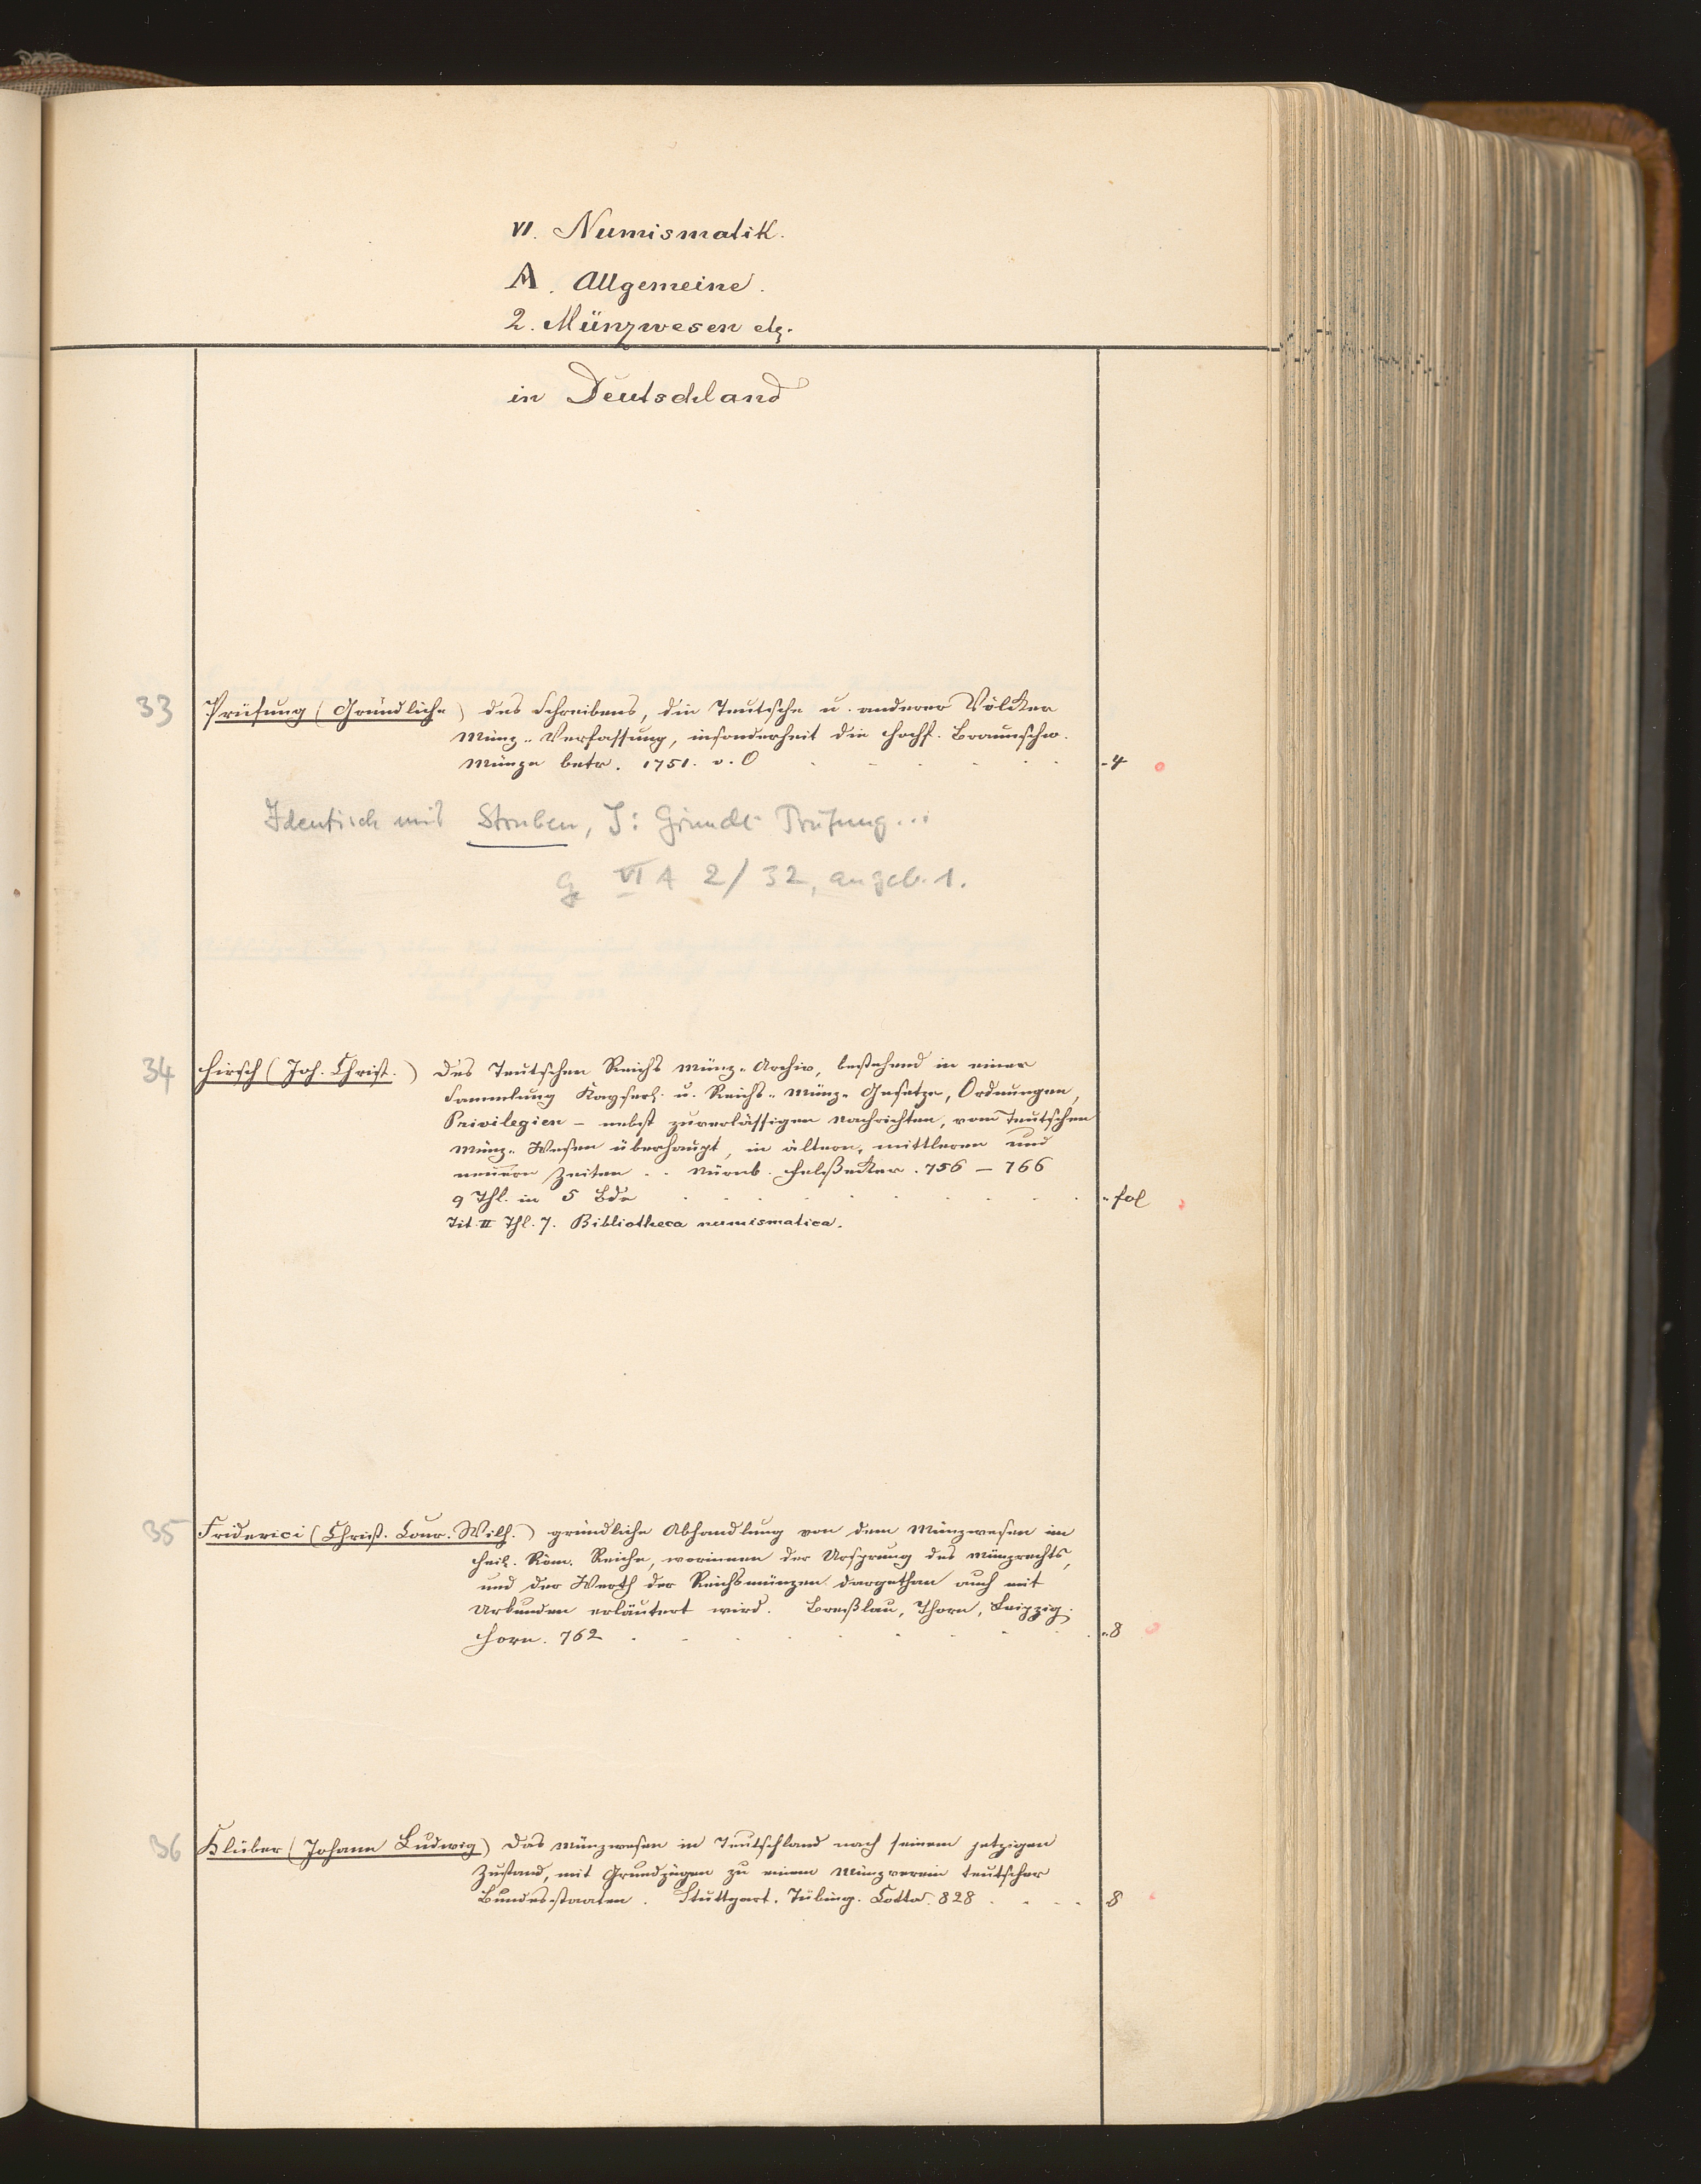 VI. Numismatik.
A. Allgemeine.
2. Münzwesen etz.
in Deutschland
33 Prüfung (Gründliche) des Schreibens, die Teutsche u. anderer Völcker
Münz-Verfassung, insonderheit die hochf. Braunschw.
Münze betr. 1751. o. O - 4
Identisch mit Struben, J: Gründl. Prüfung...
G VI A 2/32, angeb. 1.
34 Hirsch (Joh. Christ.) des Teutschen Reichs Münz-Archiv, bestehend in einer
Sammlung Kayserl. u. Reichs-Münz-Gesetze, Ordnungen,
Privilegien - nebst zuverlässigen Nachrichten, vom Teutschen
Münz-Wesen überhaupt, in ältern, mittleren und
neuern Zeiten .. Nürnb. Felßecker. 756 - 766
9 Thl. in 5 Bde - fol
Tit. II Thl. 7. Bibliotheca numismatica.
35 Friderici (Christ. Conr. Wilh.) gründliche Abhandlung von dem Münzwesen im
heil. Röm. Reiche, worinnen der Ursprung des Münzrechts,
und der Werth der Reichsmünzen dargethan auch mit
Urkunden erläutert wird. Breßlau, Thorn, Leipzig.
Horn. 762 - 8
36 Klüber (Johann Ludwig) das Münzwesen in Teutschland nach seinem jetzigen
Zustand, mit Grundzügen zu einem Münzverein teutscher
Bundesstaaten. Stuttgart. Tübing. Cotta. 828 8